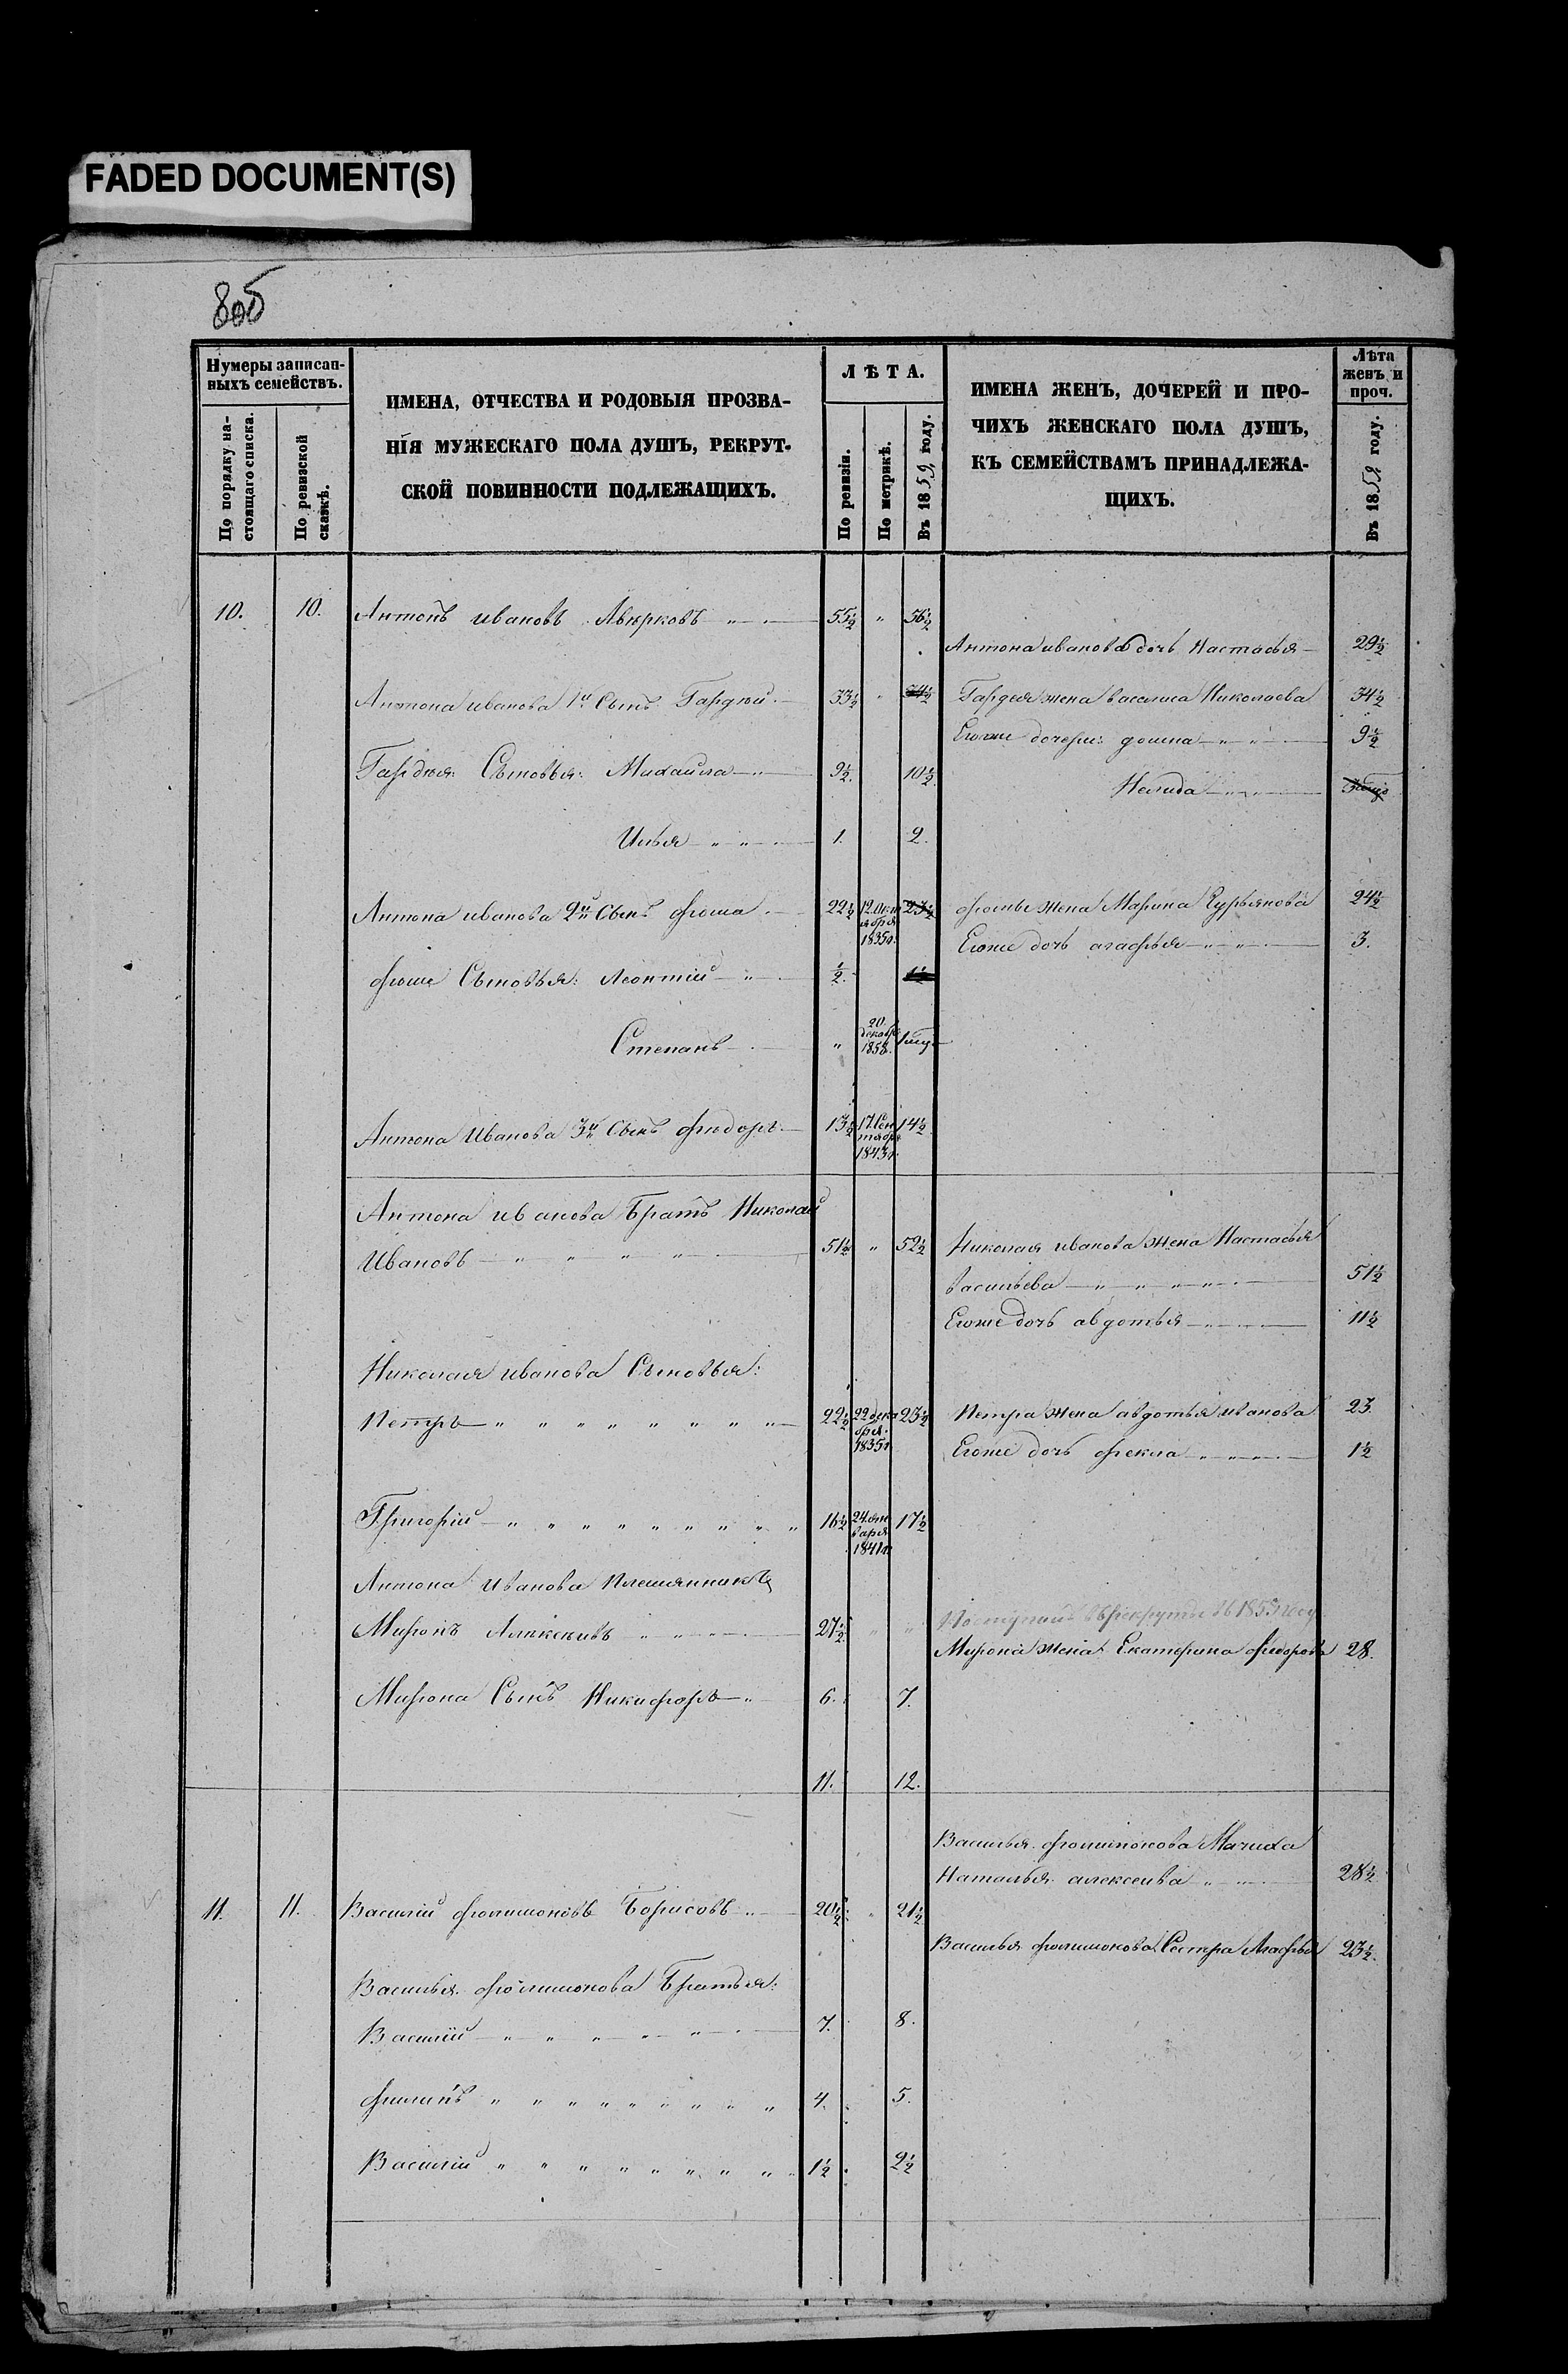 FADED DOCUMENT(S)
805
Нумеры записан-
ныхъ семействъ.
По порядку на-
стоящаго списка.
По ревизской
сказкѣ.
ИМЕНА, ОТЧЕСТВА И РОДОВЫЯ ПРОЗВА-
НІЯ МУЖЕСКАГО ПОЛА ДУШЪ, РЕКРУТ-
СКОЙ ПОВИННОСТИ ПОДЛЕЖАЩИХЪ.
ЛѢТА.
По ревизіи.
По метрикѣ.
Въ 1859 году.
ИМЕНА ЖЕНЪ, ДОЧЕРЕЙ И ПРО-
ЧИХЪ ЖЕНСКАГО ПОЛА ДУШЪ,
КЪ СЕМЕЙСТВАМЪ ПРИНАДЛЕЖА-
ЩИХЪ.
Лѣта
женъ и
проч.
Въ 1859 году.
10. 10. Антонъ ивановъ Авѣрковъ 55½ " 56½
Антона иванова дочь Настасья 29½
Антона иванова 1й Сынъ Гардѣй 33½ " 34½ Гардея жена василиса Николаева 34½
Егоже дочери: домна 9½
Гардѣя Сыновья: Михайла 9½. 10½
Илья 1. 2.
Антона иванова 2й Сынъ фома 22½ 12. Окт ября 1835г. 23½ фомы жена Марина Гурьянова 24½
Егоже дочь агафья 3.
фомы Сыновья: Леонтий ½. 1½
Степанъ " 20 декабр 1858.
Антона Иванова 3й Сынъ фѣдоръ 13½ 17. Сен тября 1843г. 14½
Антона иванова Братъ Николай
Ивановъ 51½ " 52½ Николая иванова жена Настасья
васильева 51½
Егоже дочь авдотья 11½
Николая иванова Сыновья:
Петръ 22½ 22 дека бря 1835г 23½ Петра жена авдотья иванова 23
Егоже дочь фекла 1½
Григорій 16½ 24. ян варя 1841г 17½
Антона Иванова Племянникъ
Миронъ Алѣксѣивъ 27½ " " Поступилъ в рекруты въ 1855 году
Мирона жена Екатерина федорова 28.
Мирона Сынъ Никифоръ 6. 7.
11. 12.
Василья филимонова Мачиха
Наталья алексеива 28½
11. 11. Василій филимоновъ Борисовъ 20½ 21½
Василья филимонова Сестра Агафья 23½.
Василья филимонова Братья:
Василій 7. 8.
филипъ 4. 5.
Василій 1½ 2½